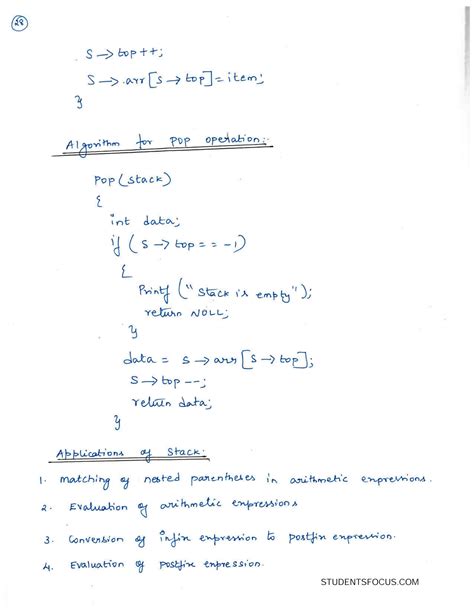 28
S → top++;
S → arr[S → top] = item;
}
Algorithm for Pop operation:-
Pop(stack)
{
int data;
if (S → top == -1)
{
Printf ("Stack is empty");
return NULL;
}
data = S → arr[S → top];
S → top --;
return data;
}
Applications of Stack:
1. Matching of nested parentheses in arithmetic expressions.
2. Evaluation of arithmetic expressions
3. Conversion of infix expression to postfix expression.
4. Evaluation of postfix expression.
STUDENTSFOCUS.COM